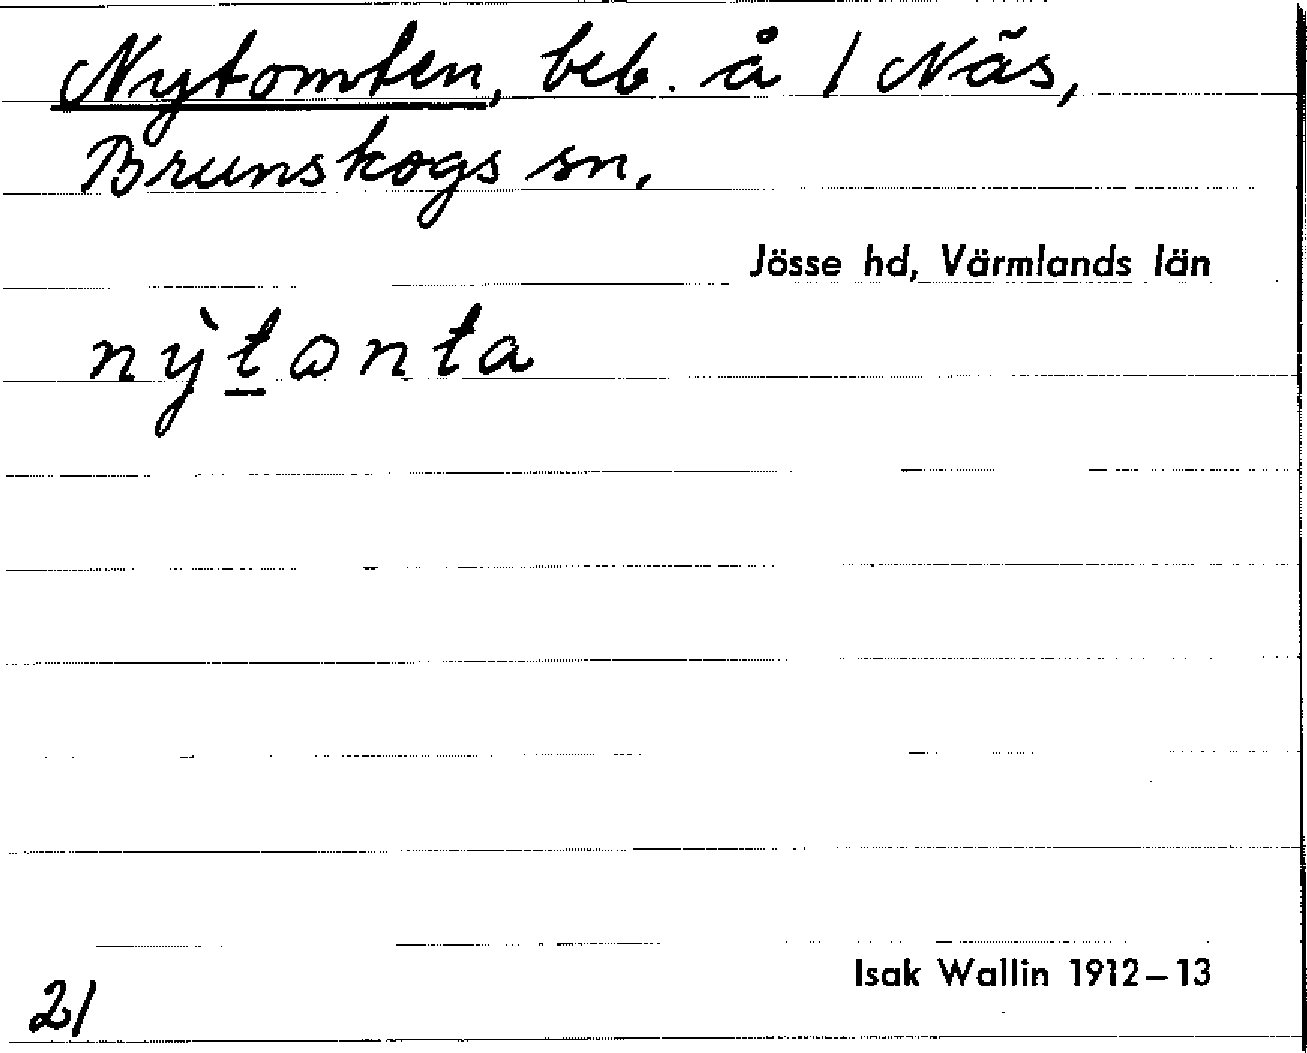 Nytomten, beb. å 1 Näs,
Brunskogs sn.
Jösse hd, Värmlands län
nỳt̲ωnta
Isak Wallin 1912–13
21